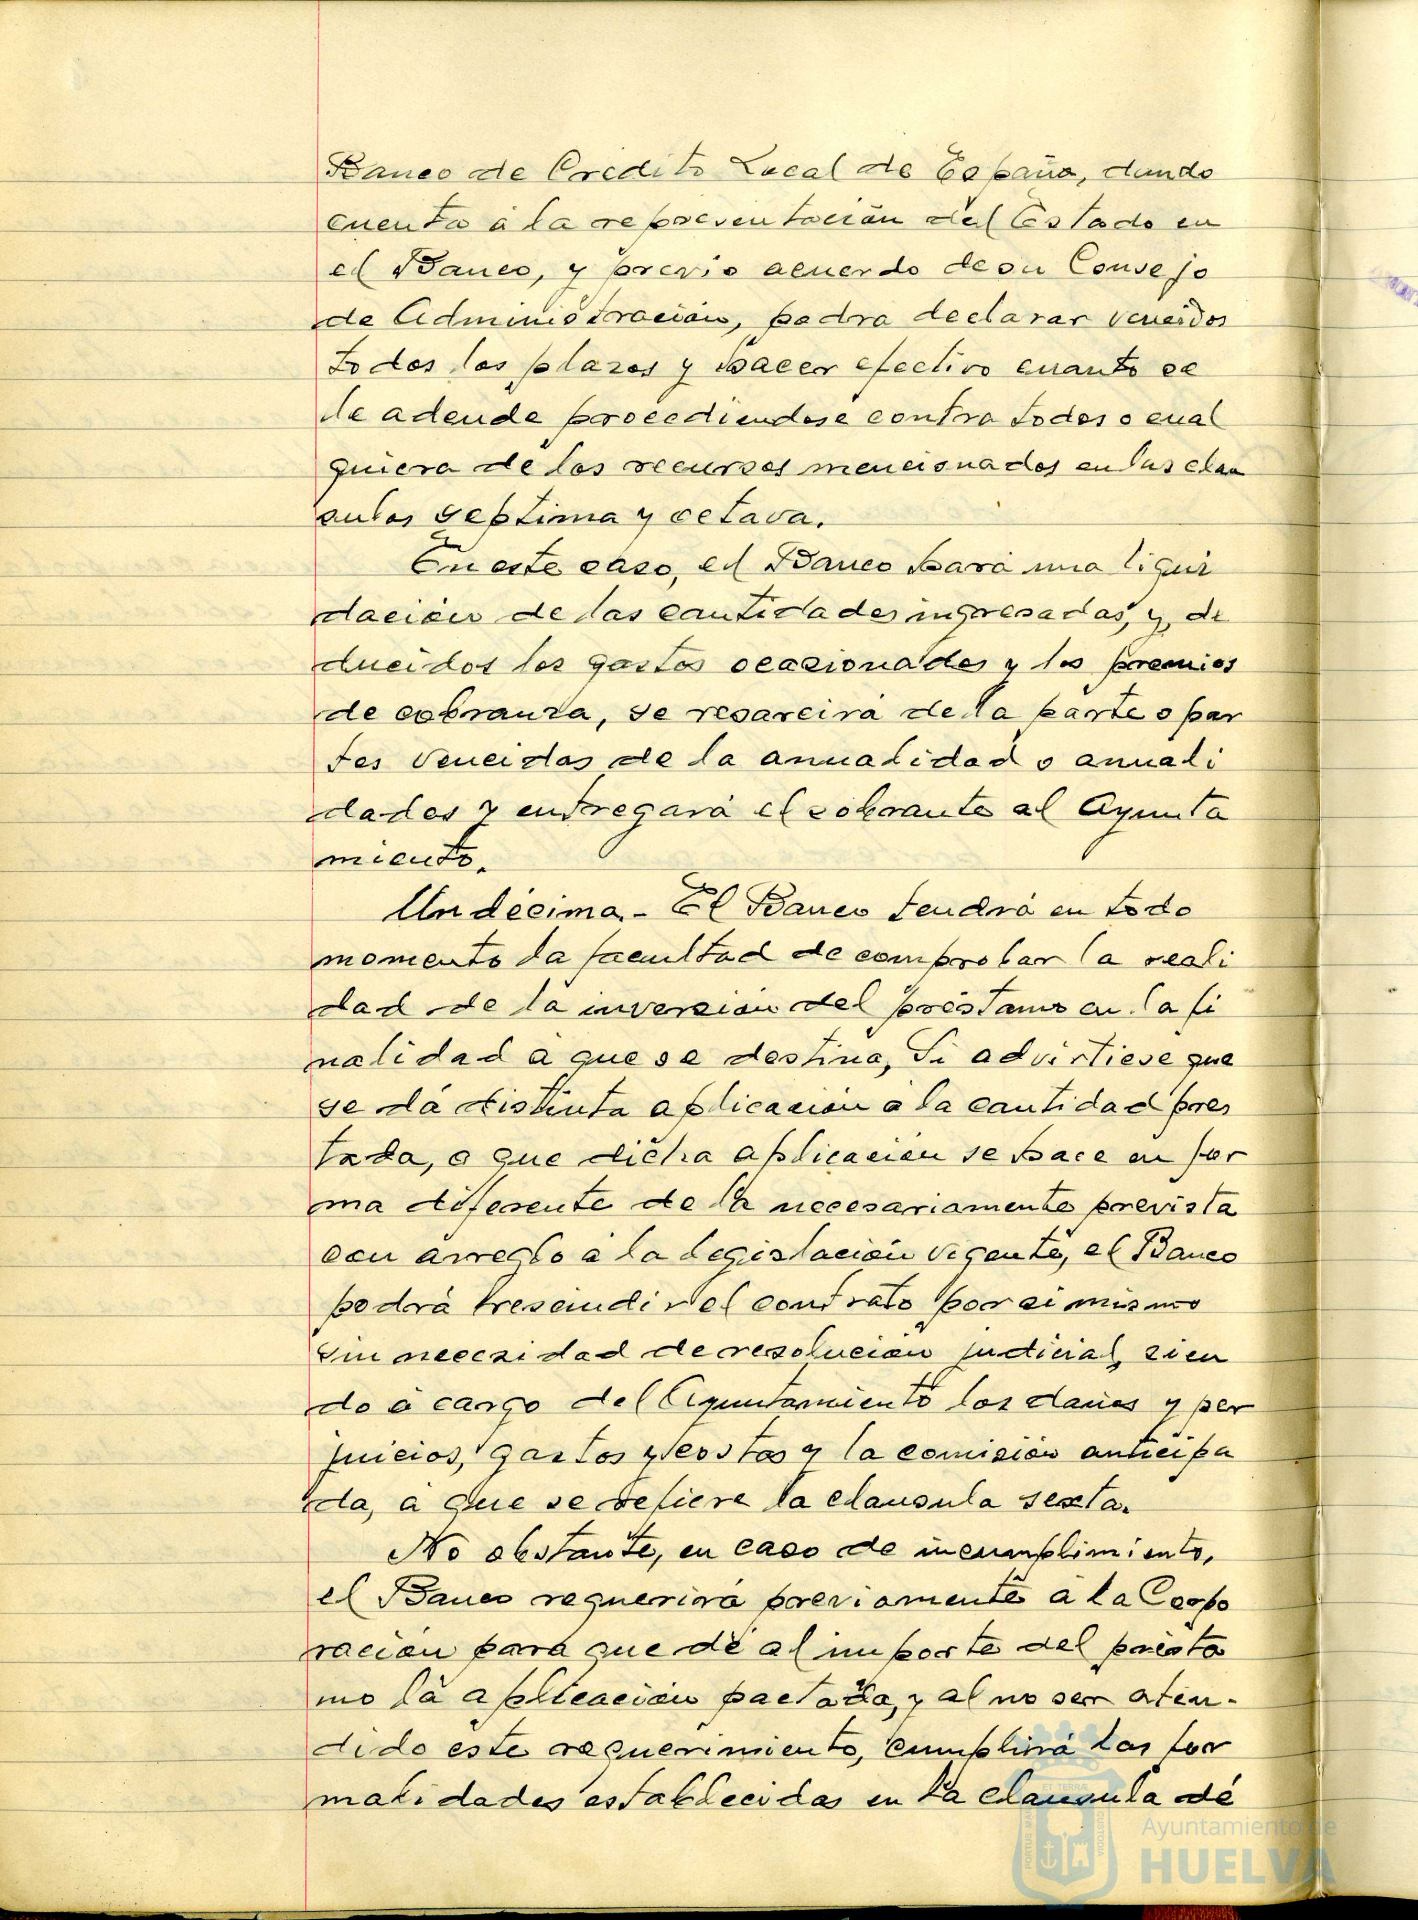 Banco de Credito Local de España, dando
cuenta á la representación del Estado en
el Banco, y previo acuerdo de su Consejo
de Administración, podra declarar vencidos
todos los plazos y hacer efectivo cuanto se
le adeude procediendose contra todos o cual
quiera de los recursos mencionados en las clau
sulas septima y octava.
En este caso, el Banco hará una liqui
dación de las cantidades ingresadas, y, de
ducidos los gastos ocasionados y los premios
de cobranza, se resarcirá de la parte o par
tes vencidas de la anualidad o anuali
dades y entregará el sobrante al Ayunta
miento.
Undécima.- El Banco tendrá en todo
momento la facultad de comprobar la reali
dad de la inversión del préstamo en la fi
nalidad á que se destina, Si advirtiese que
se dá distinta aplicación á la cantidad pres
tada, o que dicha aplicación se hace en for
ma diferente de la necesariamente prevista
con arreglo á la legislación vigente, el Banco
podrá rescindir el contrato por si mismo
sin necesidad de resolución judicial, sien
do á cargo del Ayuntamiento los daños y per
juicios, gastos y costas y la comisión anticipa
da, á que se refiere la clausula sexta.
No obstante, en caso de incumplimiento,
el Banco requerirá previamente á la Corpo
ración para que dé al importe del présta
mo la aplicación pactada, y al no ser aten-
dido éste requerimiento, cumplirá las for
malidades establecidas en la clausula dé
Ayuntamiento de
HUELVA